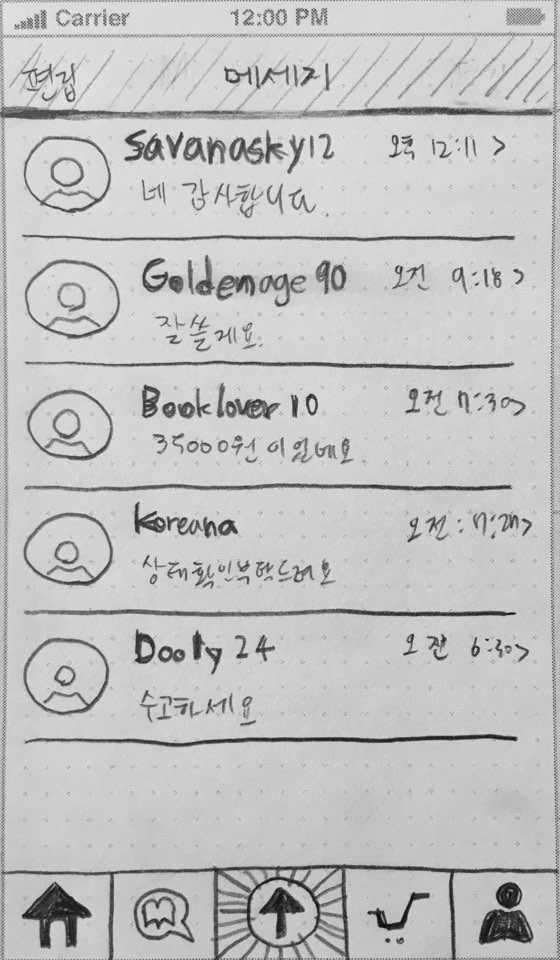 Carrier 12:00 PM
편집 메세지
Savanasky12 오후 12:11 >
네 감사합니다.
Goldenage 90 오전 9:18 >
잘 쓸게요.
Booklover 10 오전 7:30>
35000원 이일네요.
Koreana 오전 : 7:27>
상태확인부탁드려요
Dooly 24 오전 6:30>
수고하세요